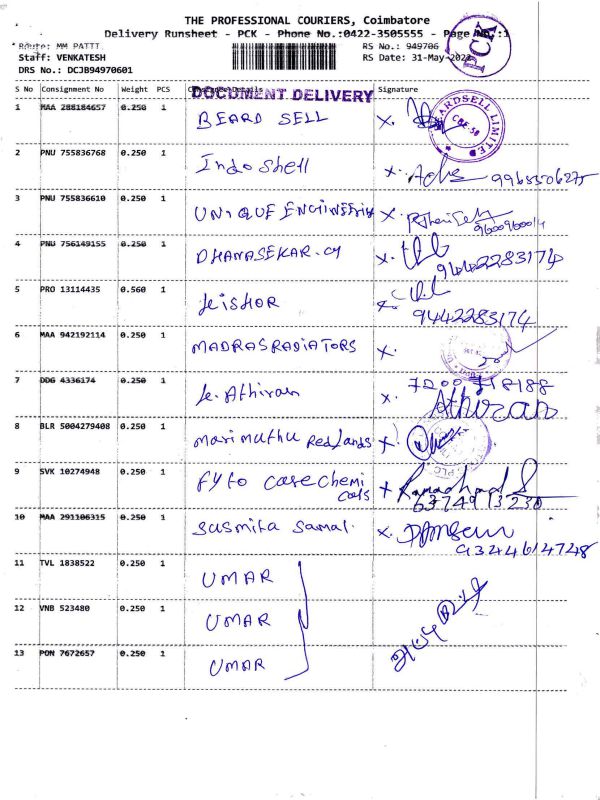 THE PROFESSIONAL COURIERS, Coimbatore
Delivery Runsheet - PCK - Phone No.:0422-3505555 - Page No.:1
PCK
Route: MM PATTI
RS No.: 949706
Staff: VENKATESH
RS Date: 31-May-2022
DRS No.: DCJB94970601
DOCUMENT DELIVERY
S No Consignment No Weight PCS Consignee Details Signature
1 MAA 288184657 0.250 1 BEARD SELL X.
BEARDSELL LIMITED
CBE-58
2 PNU 755836768 0.250 1 Indo Shell X.
3 PNU 755836610 0.250 1 UNIQUE ENGINEERING X.
9600960014
4 PNU 756149155 0.250 1 DHANASEKAR. X.
9442283174
5 PRO 13114435 0.560 1 Kishor X
9442283174
6 MAA 942192114 0.250 1 MADRAS RADIATORS X.
7 DDG 4336174 0.250 1 K. Athiran X. 7200718188
Athiran
8 BLR 5004279408 0.250 1 Marimuthu Redlands X
9 SVK 10274948 0.250 1 Fyto case chemi
cals
6374913230
10 MAA 291106315 0.250 1 Susmita Samal. X.
9324614748
11 TVL 1838522 0.250 1 UMAR
12 VNB 523480 0.250 1 UMAR
13 PON 7672657 0.250 1 UMAR